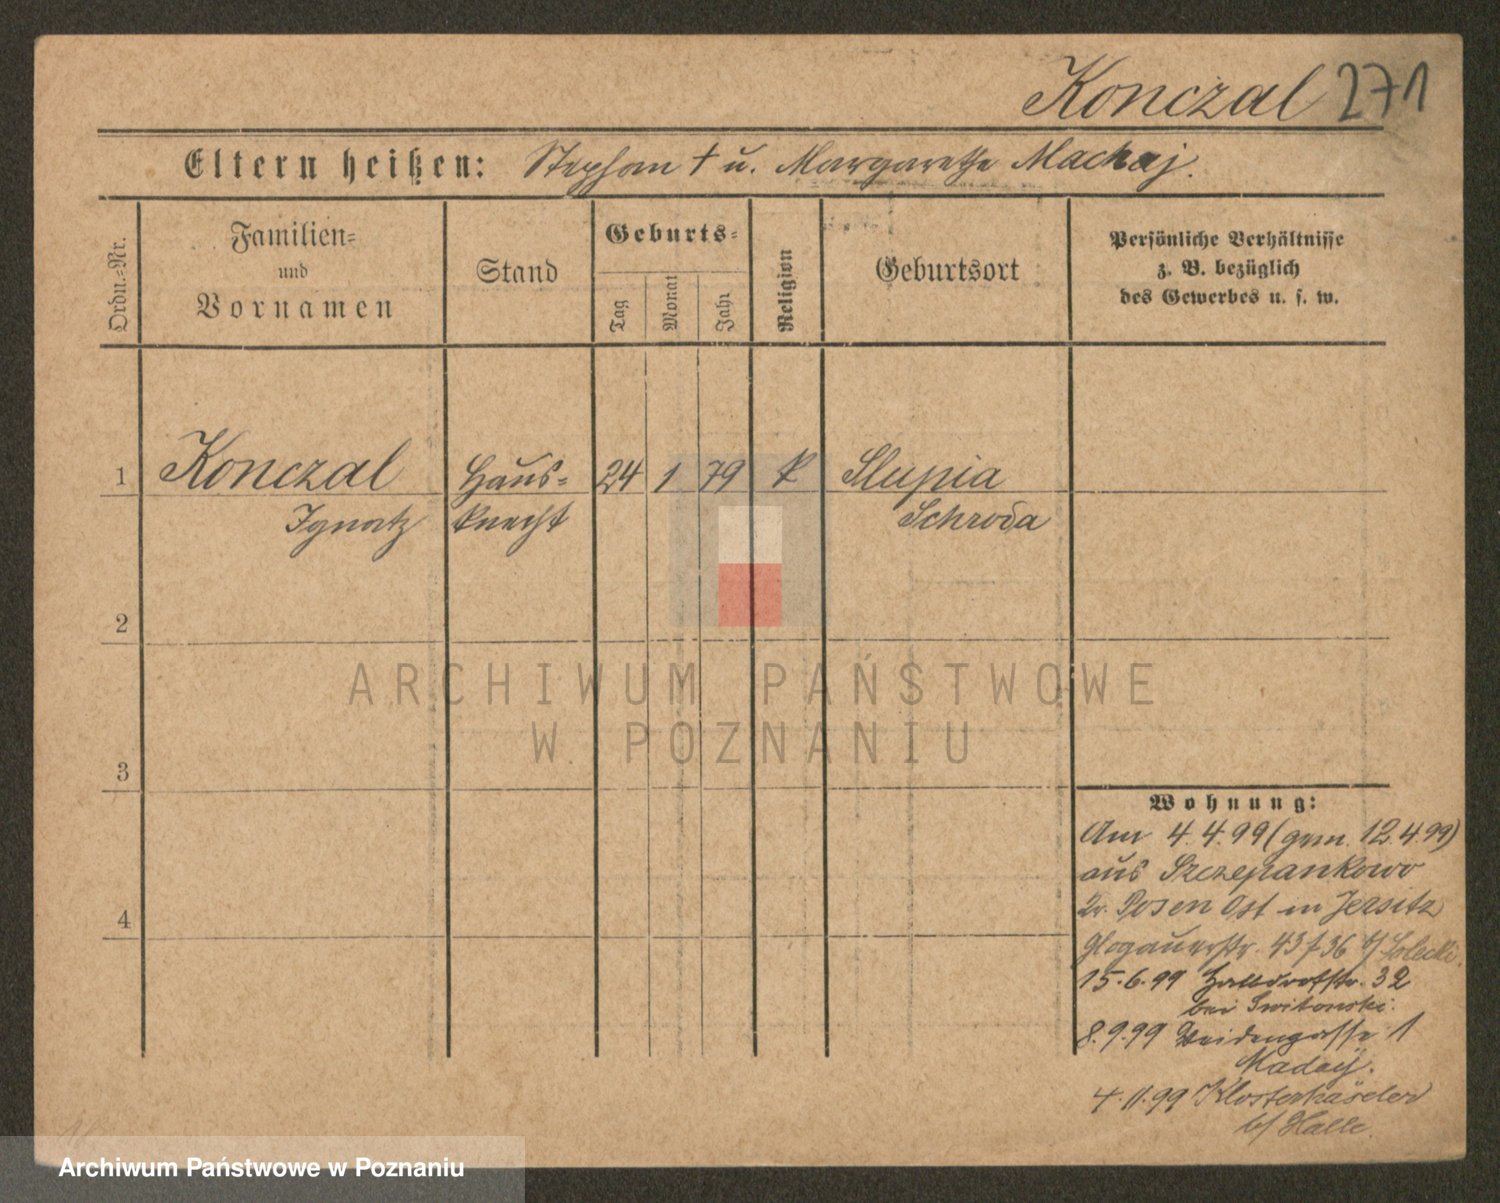 Konczal 271
Eltern heißen: Stephan † u. Margarethe Mackaj.
Ordn.-Nr.
Familien-
und
Vornamen
Stand
Geburts-
Tag
Monat
Jahr
Religion
Geburtsort
Persönliche Verhältnisse
z. B. bezüglich
des Gewerbes u. s. w.
1 Konczal Haus- 24 1 79 k Slupia
Ignatz knecht Schroda
2
ARCHIWUM PAŃSTWOWE
W POZNANIU
3
Wohnung:
Am 4.4.99 (gem. 12.4.99)
aus Szczepankowo
Kr. Posen Ost in Jersitz
4
Glogauerstr. 43/36 b/
15.6.99 32
bei Switonski.
8.9.99 Weidengasse 1
Maday.
4.11.99
b/ Halle.
Archiwum Państwowe w Poznaniu